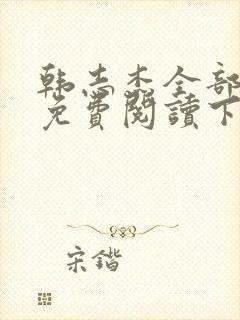 韩志杰全部
免费阅读下
宋锴